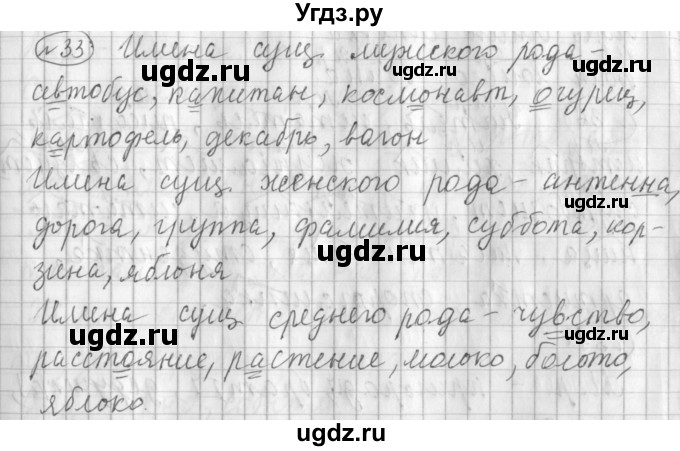 Угдз.ру
№ 33 Имена сущ. мужского рода -
ugdz.ru ugdz.ru
автобус, капитан, космонавт, огурец,
картофель, декабрь, вагон
ugdz.ru
Имена сущ. женского рода - антенна,
ugdz.ru
дорога, группа, фамилия, суббота, кор-
ugdz.ru
зина, яблоня
Имена сущ среднего рода - чувство,
ugdz.ru ugdz.ru
расстояние, растение, молоко, болото,
яблоко.
ugdz.ru